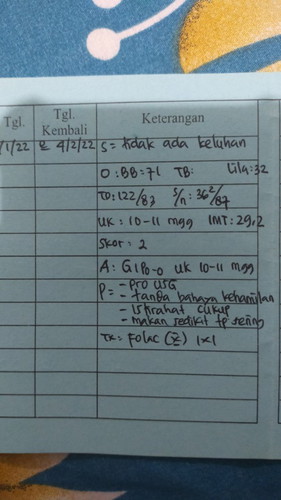 Tgl. Tgl. Kembali Keterangan
/1/22 4/2/22 S = tidak ada keluhan
O : BB = 71 TB: Lila = 32
TD: 122/83 S/N : 36²/87
UK : 10-11 mgg IMT : 29,2
Skor = 2
A: G1P0-0 UK 10-11 mgg
P = - Pro USG
- tanda bahaya kehamilan
- istirahat cukup
- makan sedikit tp sering
Tx = Folac (II) 1x1